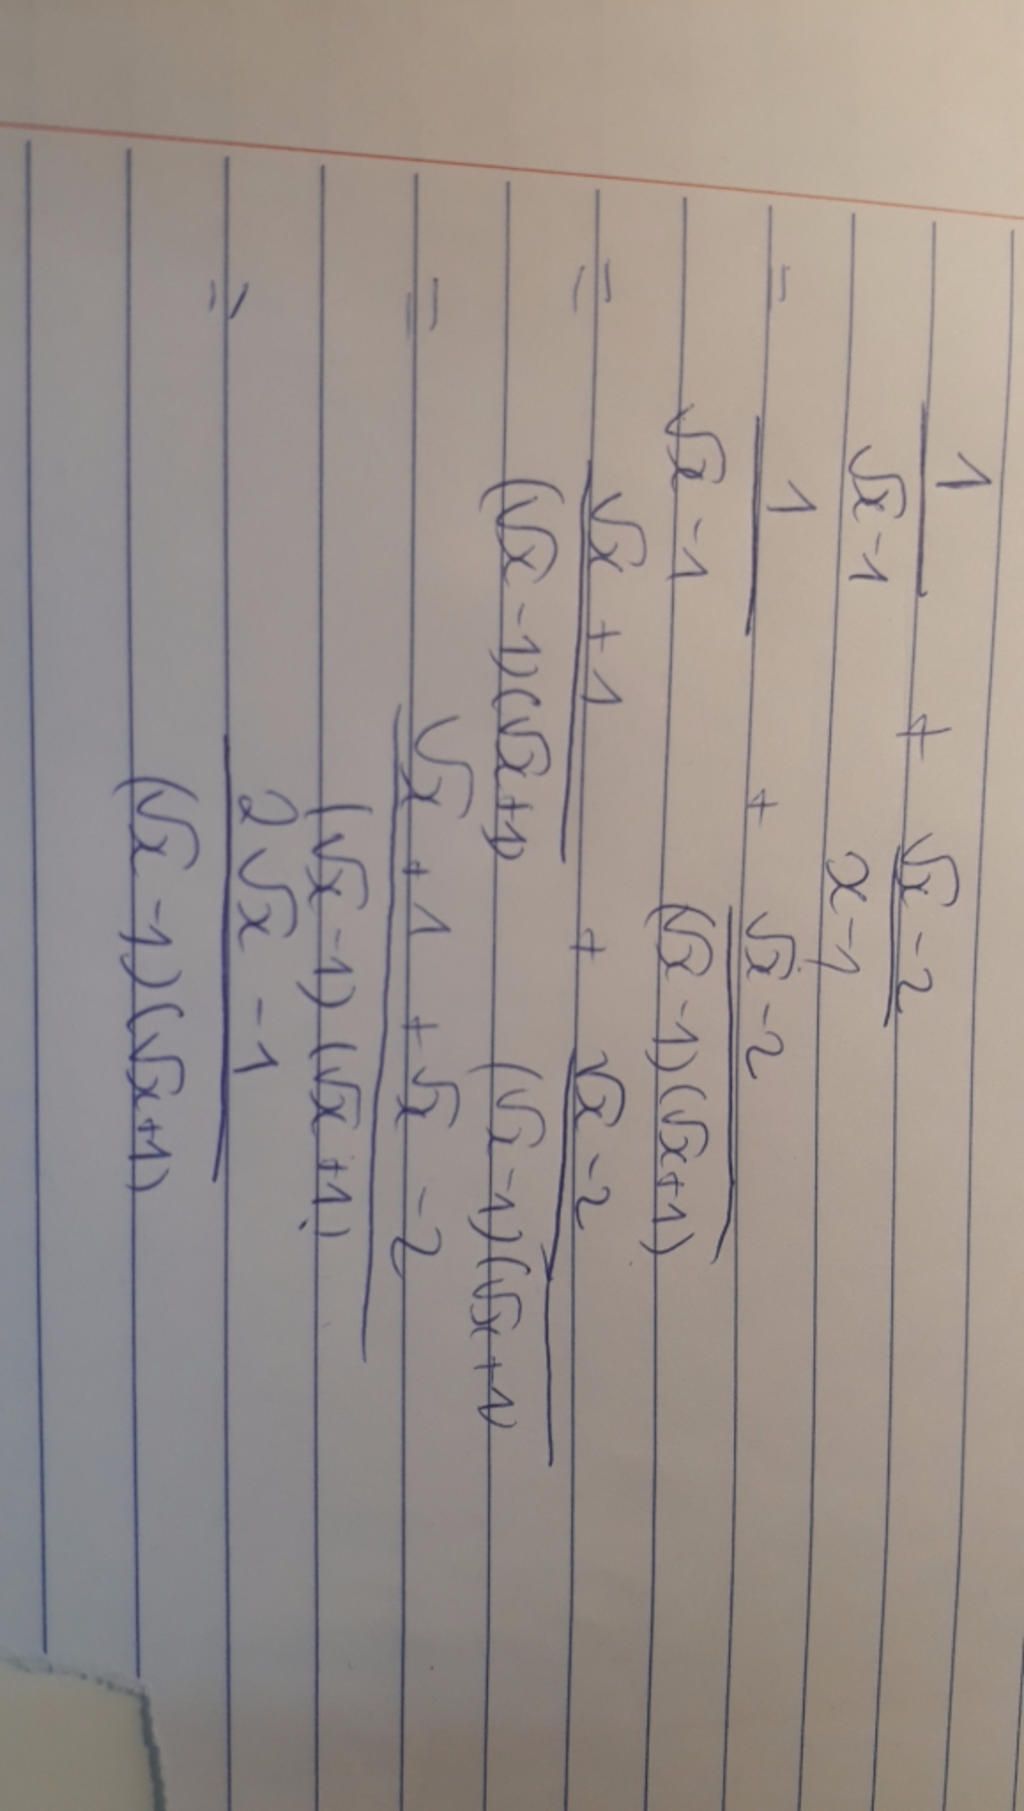 1/(√x - 1) + (√x - 2)/(x - 1)
= 1/(√x - 1) + (√x - 2)/((√x - 1)(√x + 1))
= (√x + 1)/((√x - 1)(√x + 1)) + (√x - 2)/((√x - 1)(√x + 1))
= (√x + 1 + √x - 2)/((√x - 1)(√x + 1))
= (2√x - 1)/((√x - 1)(√x + 1))